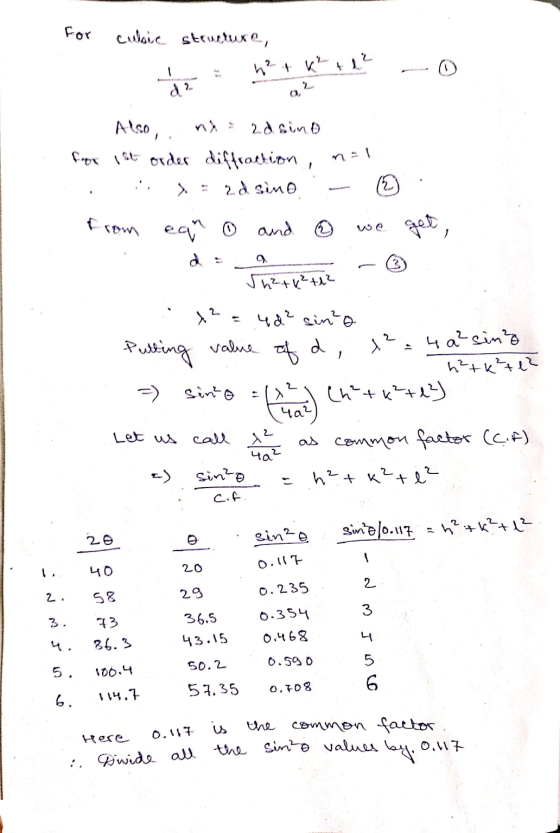 For cubic structure,
1/d² = (h² + k² + l²)/a² — ①
Also, nλ = 2d sinθ
for 1st order diffraction, n=1
∴ λ = 2d sinθ — ②
From eqⁿ ① and ② we get,
d = a/√(h²+k²+l²) — ③
λ² = 4d² sin²θ
Putting value of d, λ² = 4a² sin²θ/(h²+k²+l²)
=) sin²θ = (λ²/4a²) (h²+k²+l²)
Let us call λ²/4a² as common factor (C.F)
=) sin²θ/C.F. = h² + k² + l²
2θ θ sin²θ sin²θ/0.117 = h²+k²+l²
1. 40 20 0.117 1
2. 58 29 0.235 2
3. 73 36.5 0.354 3
4. 86.3 43.15 0.468 4
5. 100.4 50.2 0.590 5
6. 114.7 57.35 0.708 6
Here 0.117 is the common factor.
∴ Divide all the sin²θ values by 0.117